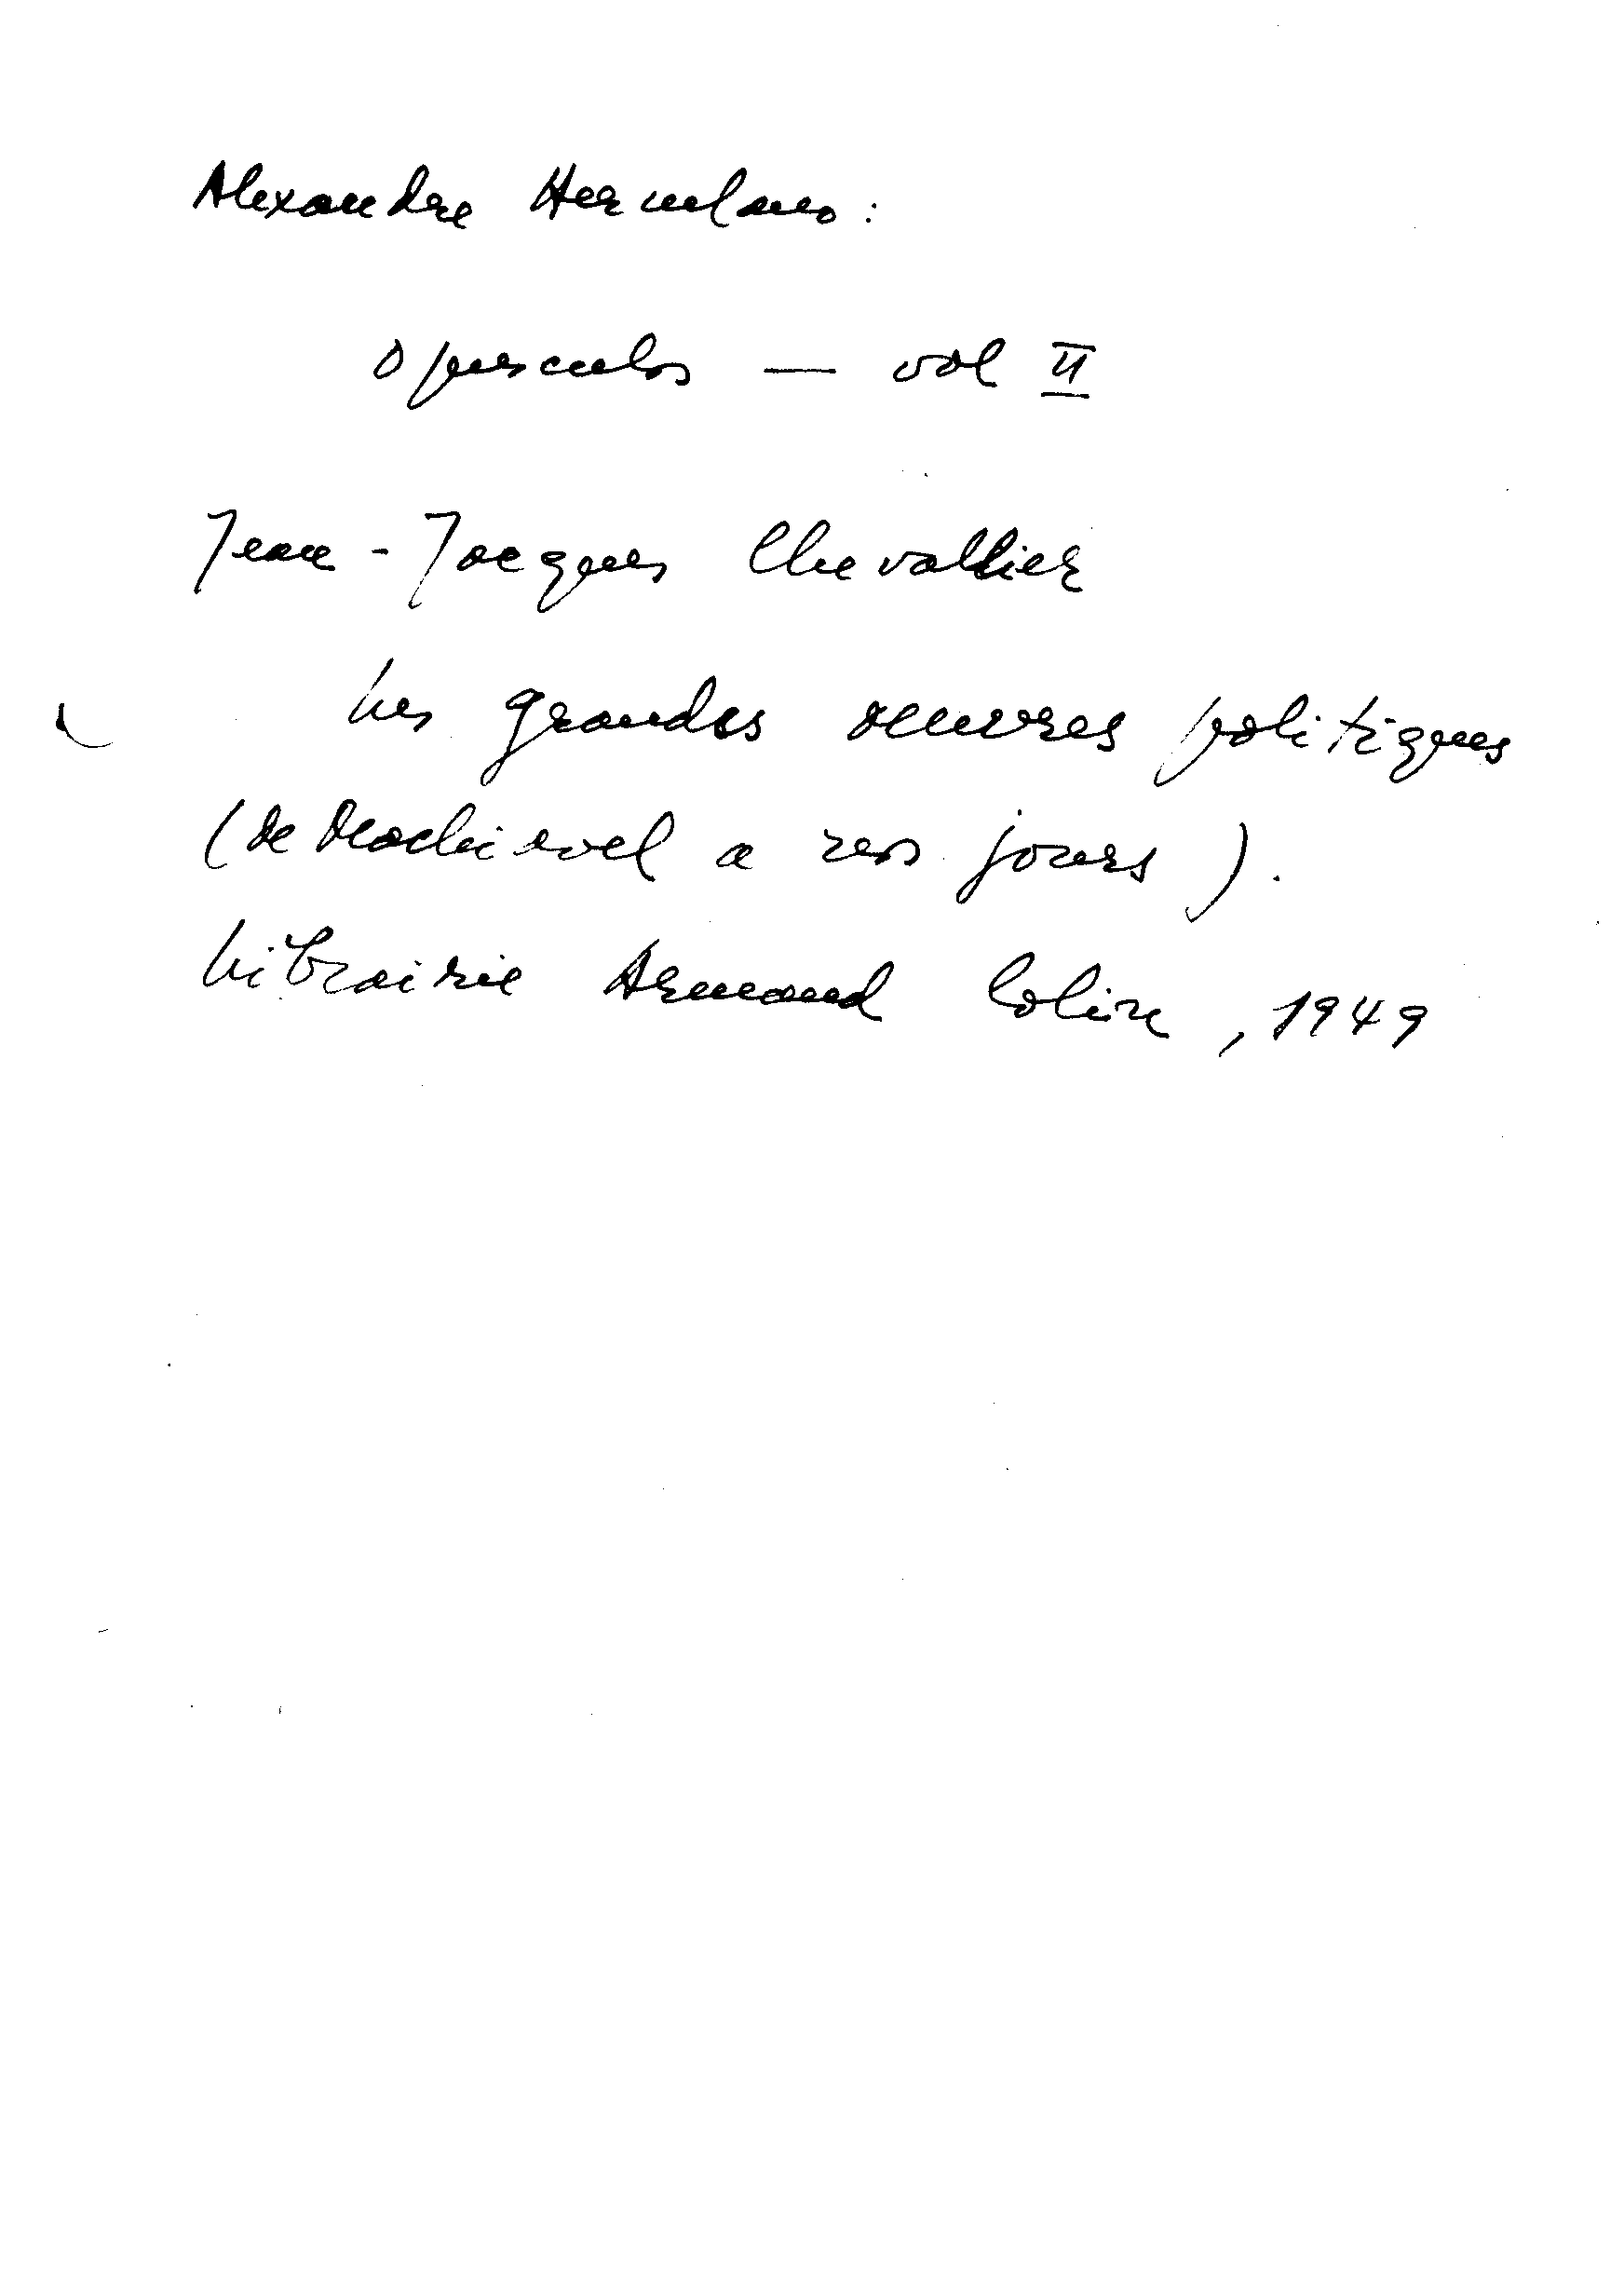 Alexandre Herculano:
Opusculos — vol II
Jean-Jacques Chevallier
Les grandes oeuvres politiques
(de Machiavel a nos jours).
Librairie Armand Colin, 1949